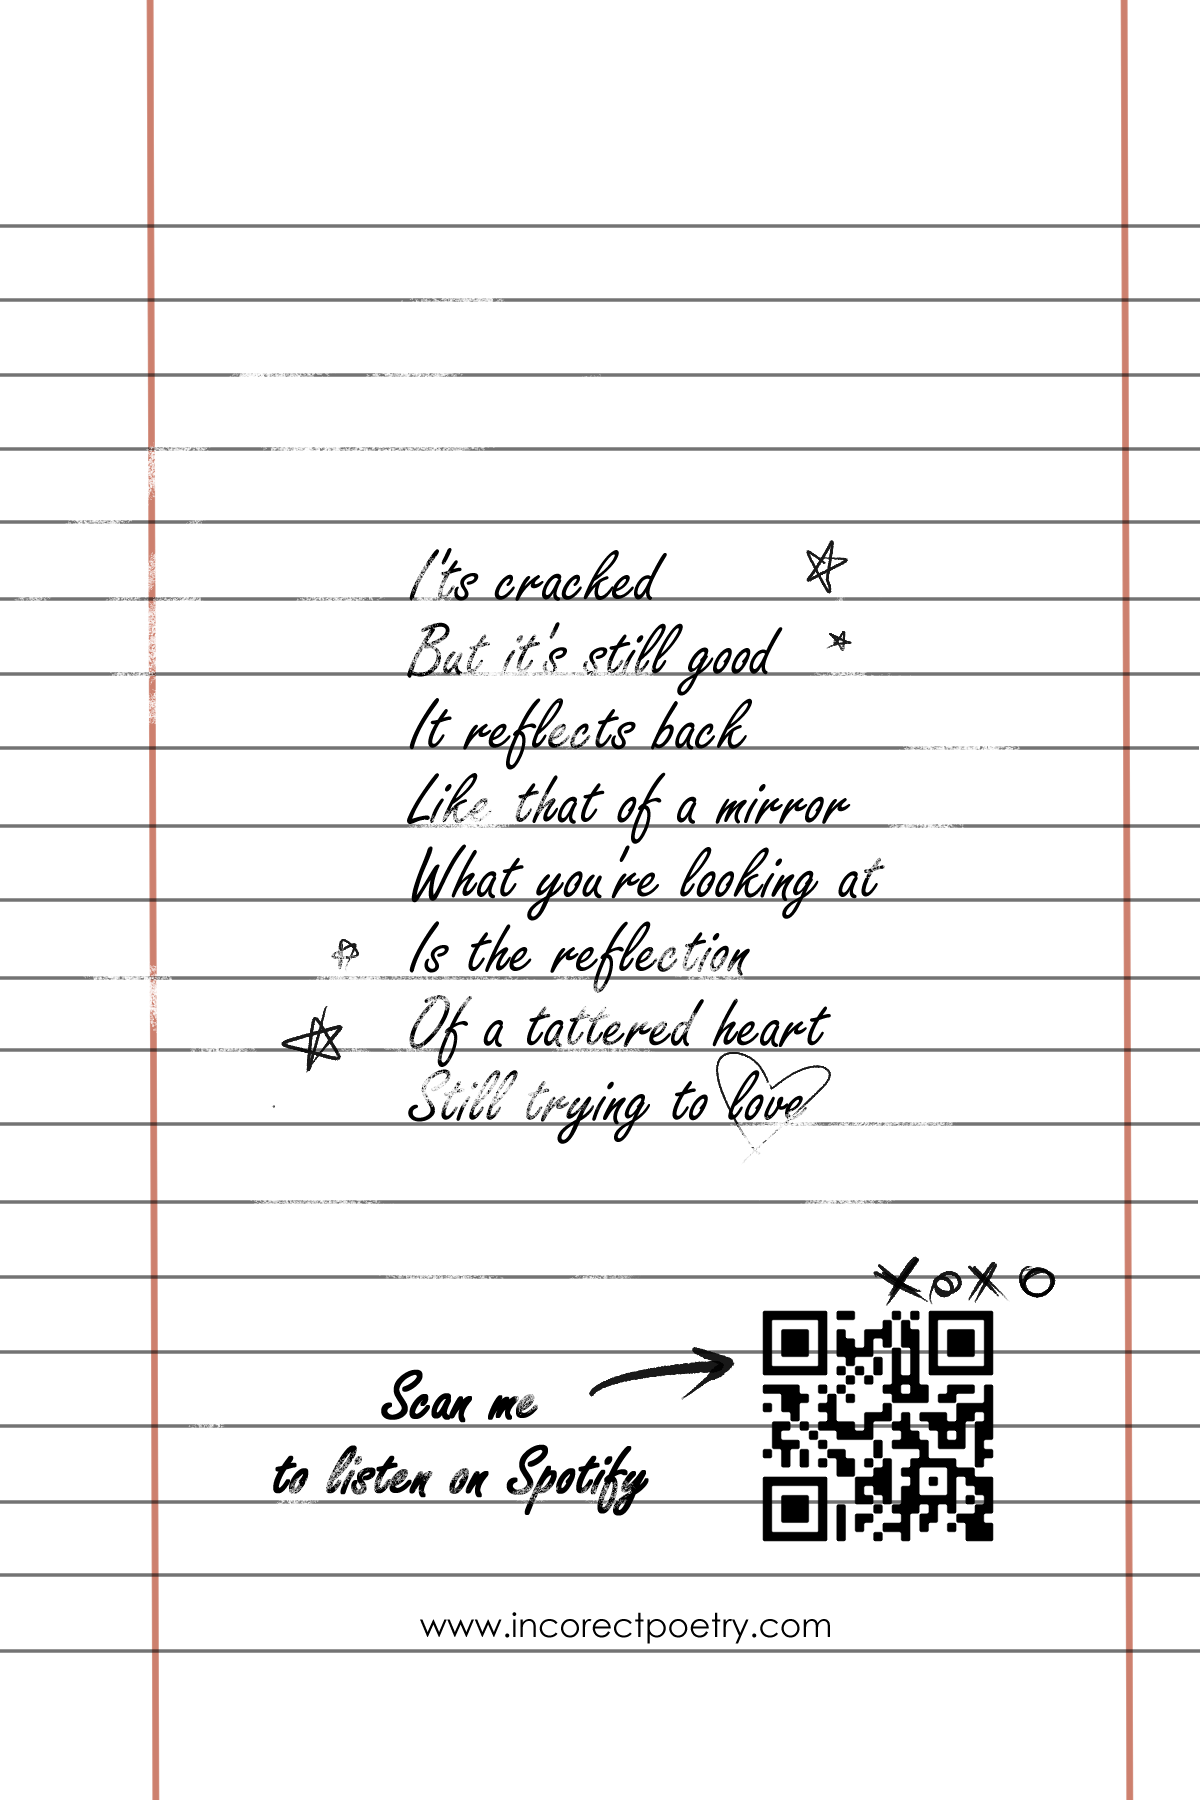 I'ts cracked
But it's still good
It reflects back
Like that of a mirror
What you're looking at
Is the reflection
Of a tattered heart
Still trying to love
XOXO
Scan me
to listen on Spotify
www.incorectpoetry.com